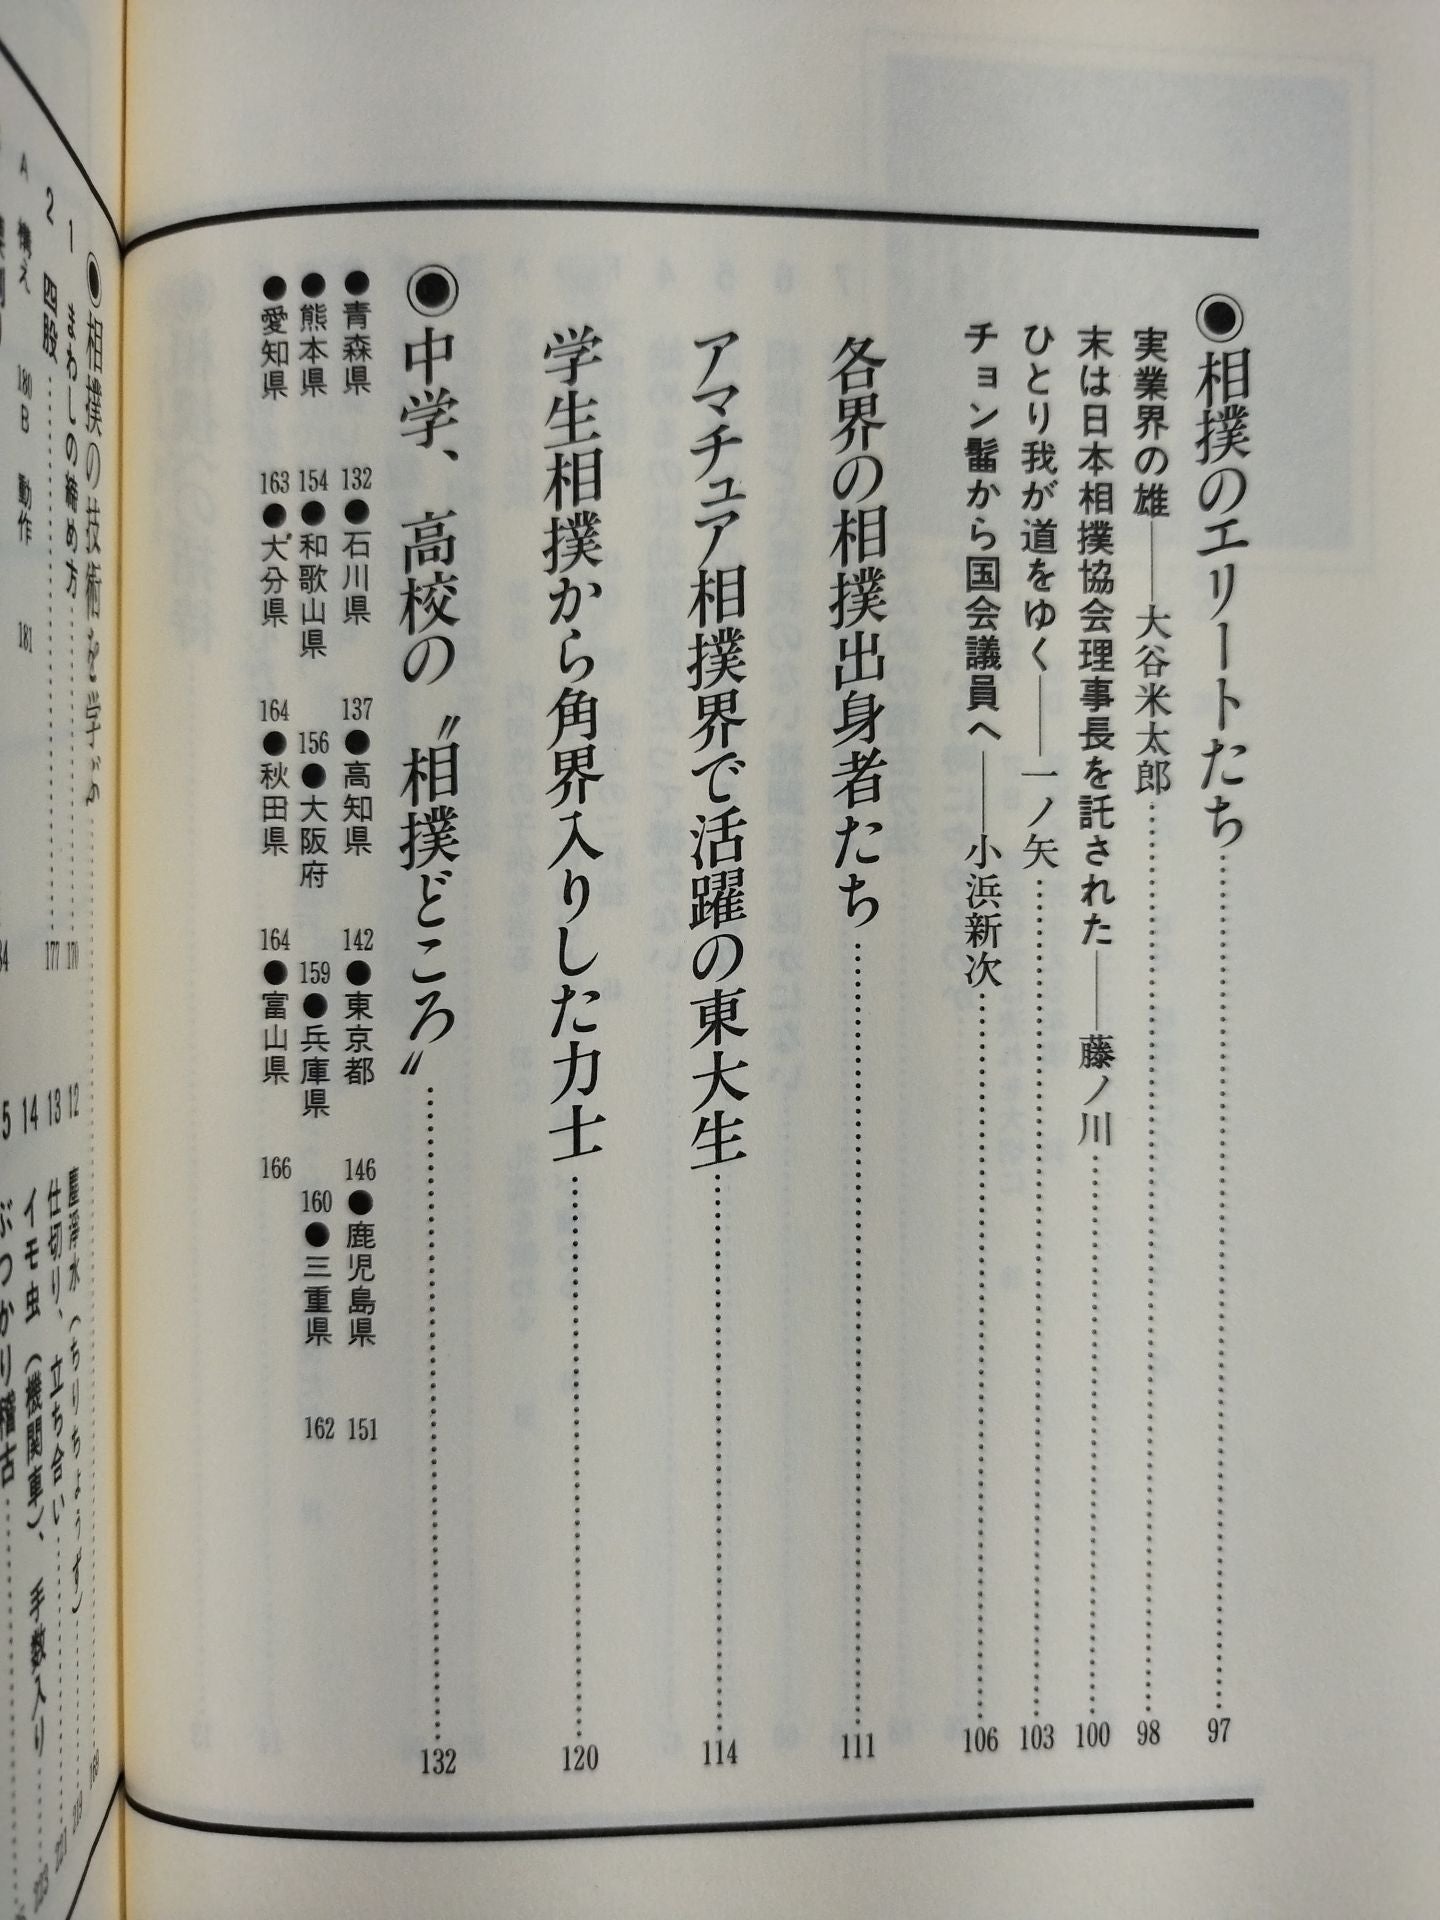 ◉相撲のエリートたち……97
実業界の雄――大谷米太郎……98
末は日本相撲協会理事長を託された――藤ノ川……100
ひとり我が道をゆく――一ノ矢……103
チョン髷から国会議員へ――小浜新次……106
各界の相撲出身者たち……111
アマチュア相撲界で活躍の東大生……114
学生相撲から角界入りした力士……120
◉中学、高校の〝相撲どころ〟……132
●青森県 132 ●石川県 137 ●高知県 142 ●東京都 146 ●鹿児島県 151
●熊本県 154 ●和歌山県 156 ●大阪府 159 ●兵庫県 160 ●三重県 162
●愛知県 163 ●大分県 164 ●秋田県 164 ●富山県 166
◉相撲の技術を学ぶ……169
1 まわしの締め方……170
12 塵浄水（ちりちょうず）……219
2 四股……177
13 仕切り、立ち合い……221
A 構え 180 B 動作 181
14 イモ虫（機関車）、手数入り……223
ぶつかり稽古